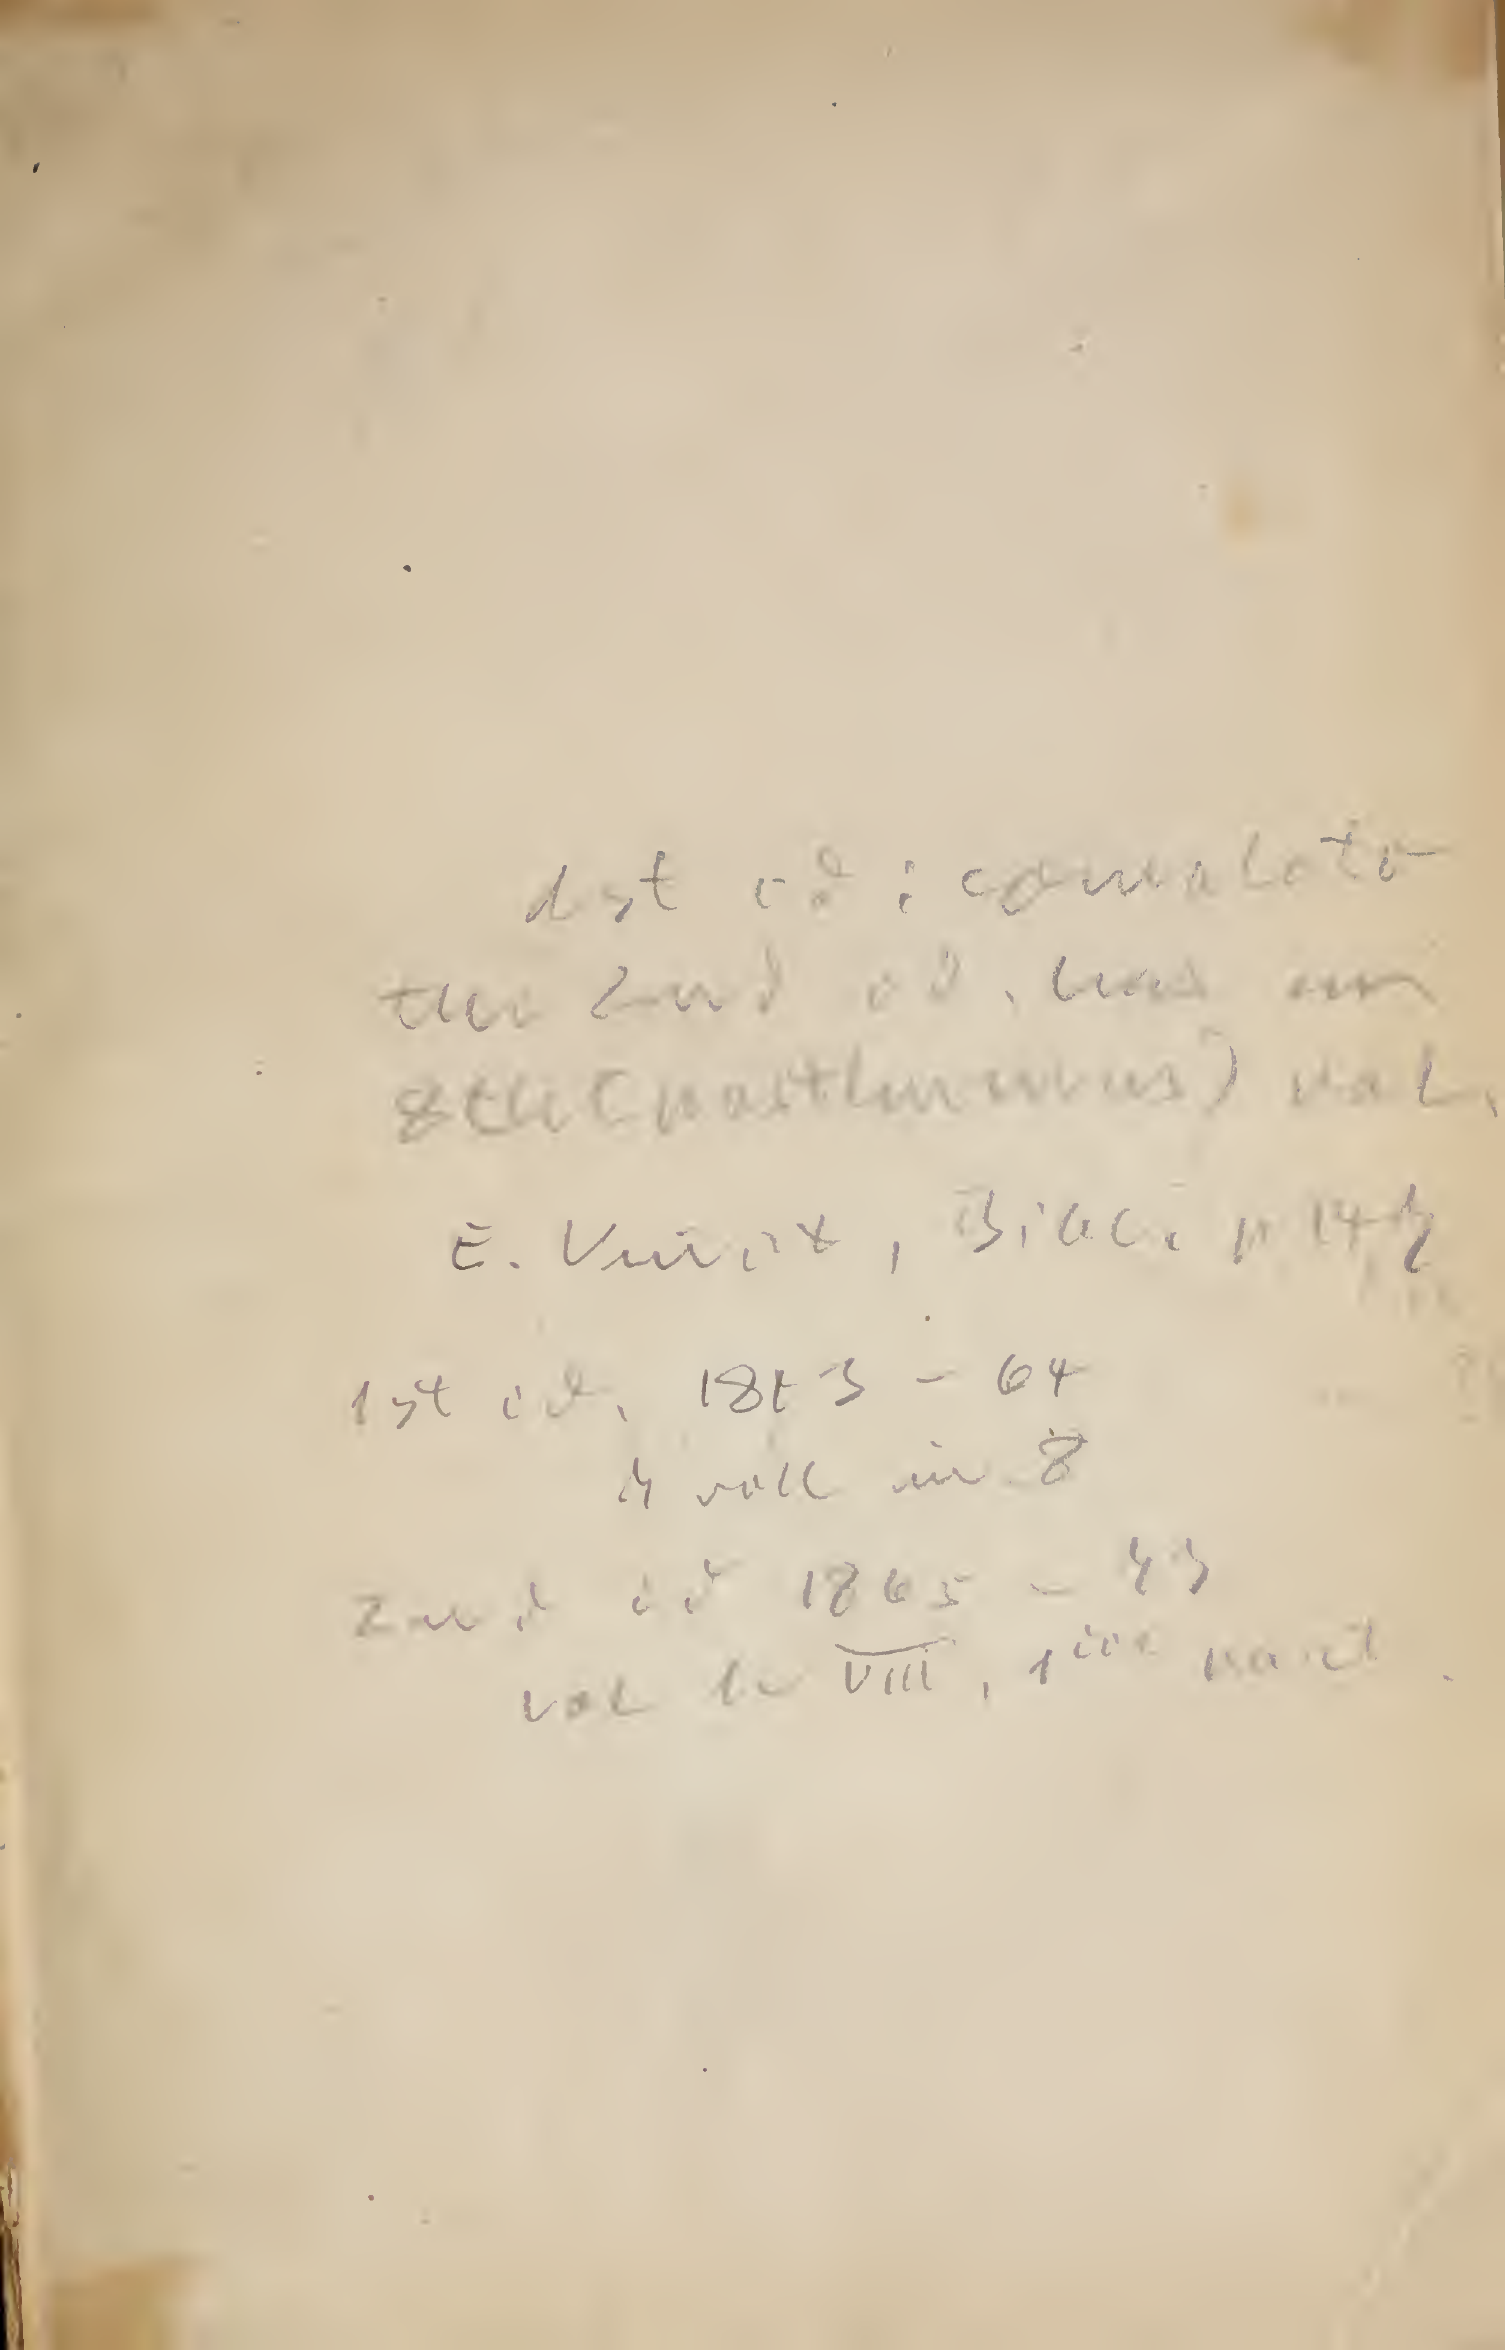 1st ed: complete
the 2nd ed. has an
8th (posthumus) vol.
E. Vinet, Bibl. p
1st ed. 1843 - 64
in 8
2nd ed 1865 -
vol VIII, 1ère part.